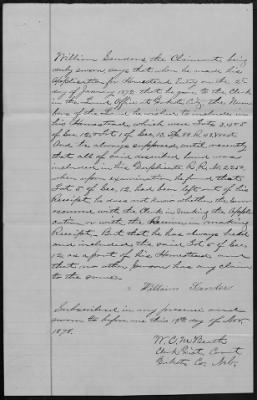 William Sanders the Claimant, being
duly sworn says that when he made his
Application for Homestead Entry on the 2d
day of January 1872 that he gave to the Clerk
in the Land Office at Dakota City, the Num-
bers of the Land he wished to include in
his Homestead which were Lots 3, 4 & 5
of Sec. 12 & Lot 1 of Sec. 13
And he always supposed, until recently
that all of said described land was
included in his Duplicate
when upon examination he found that
Lot 5 of Sec. 12 had been left out of his
Receipt, he does not know whether the Error
occurred with the Clerk in making the Applic-
ation or with the Receiver in making
Receipt. But that he has always held
and included the said Lot 5 of Sec.
12, as a part of his Homestead and
that no other person has any claim
to the same.
William Sander
Subscribed in my presence and
sworn to before me this 19th day of Nov.
1878.
Clerk Dist. Court
Dakota Co. Neb.